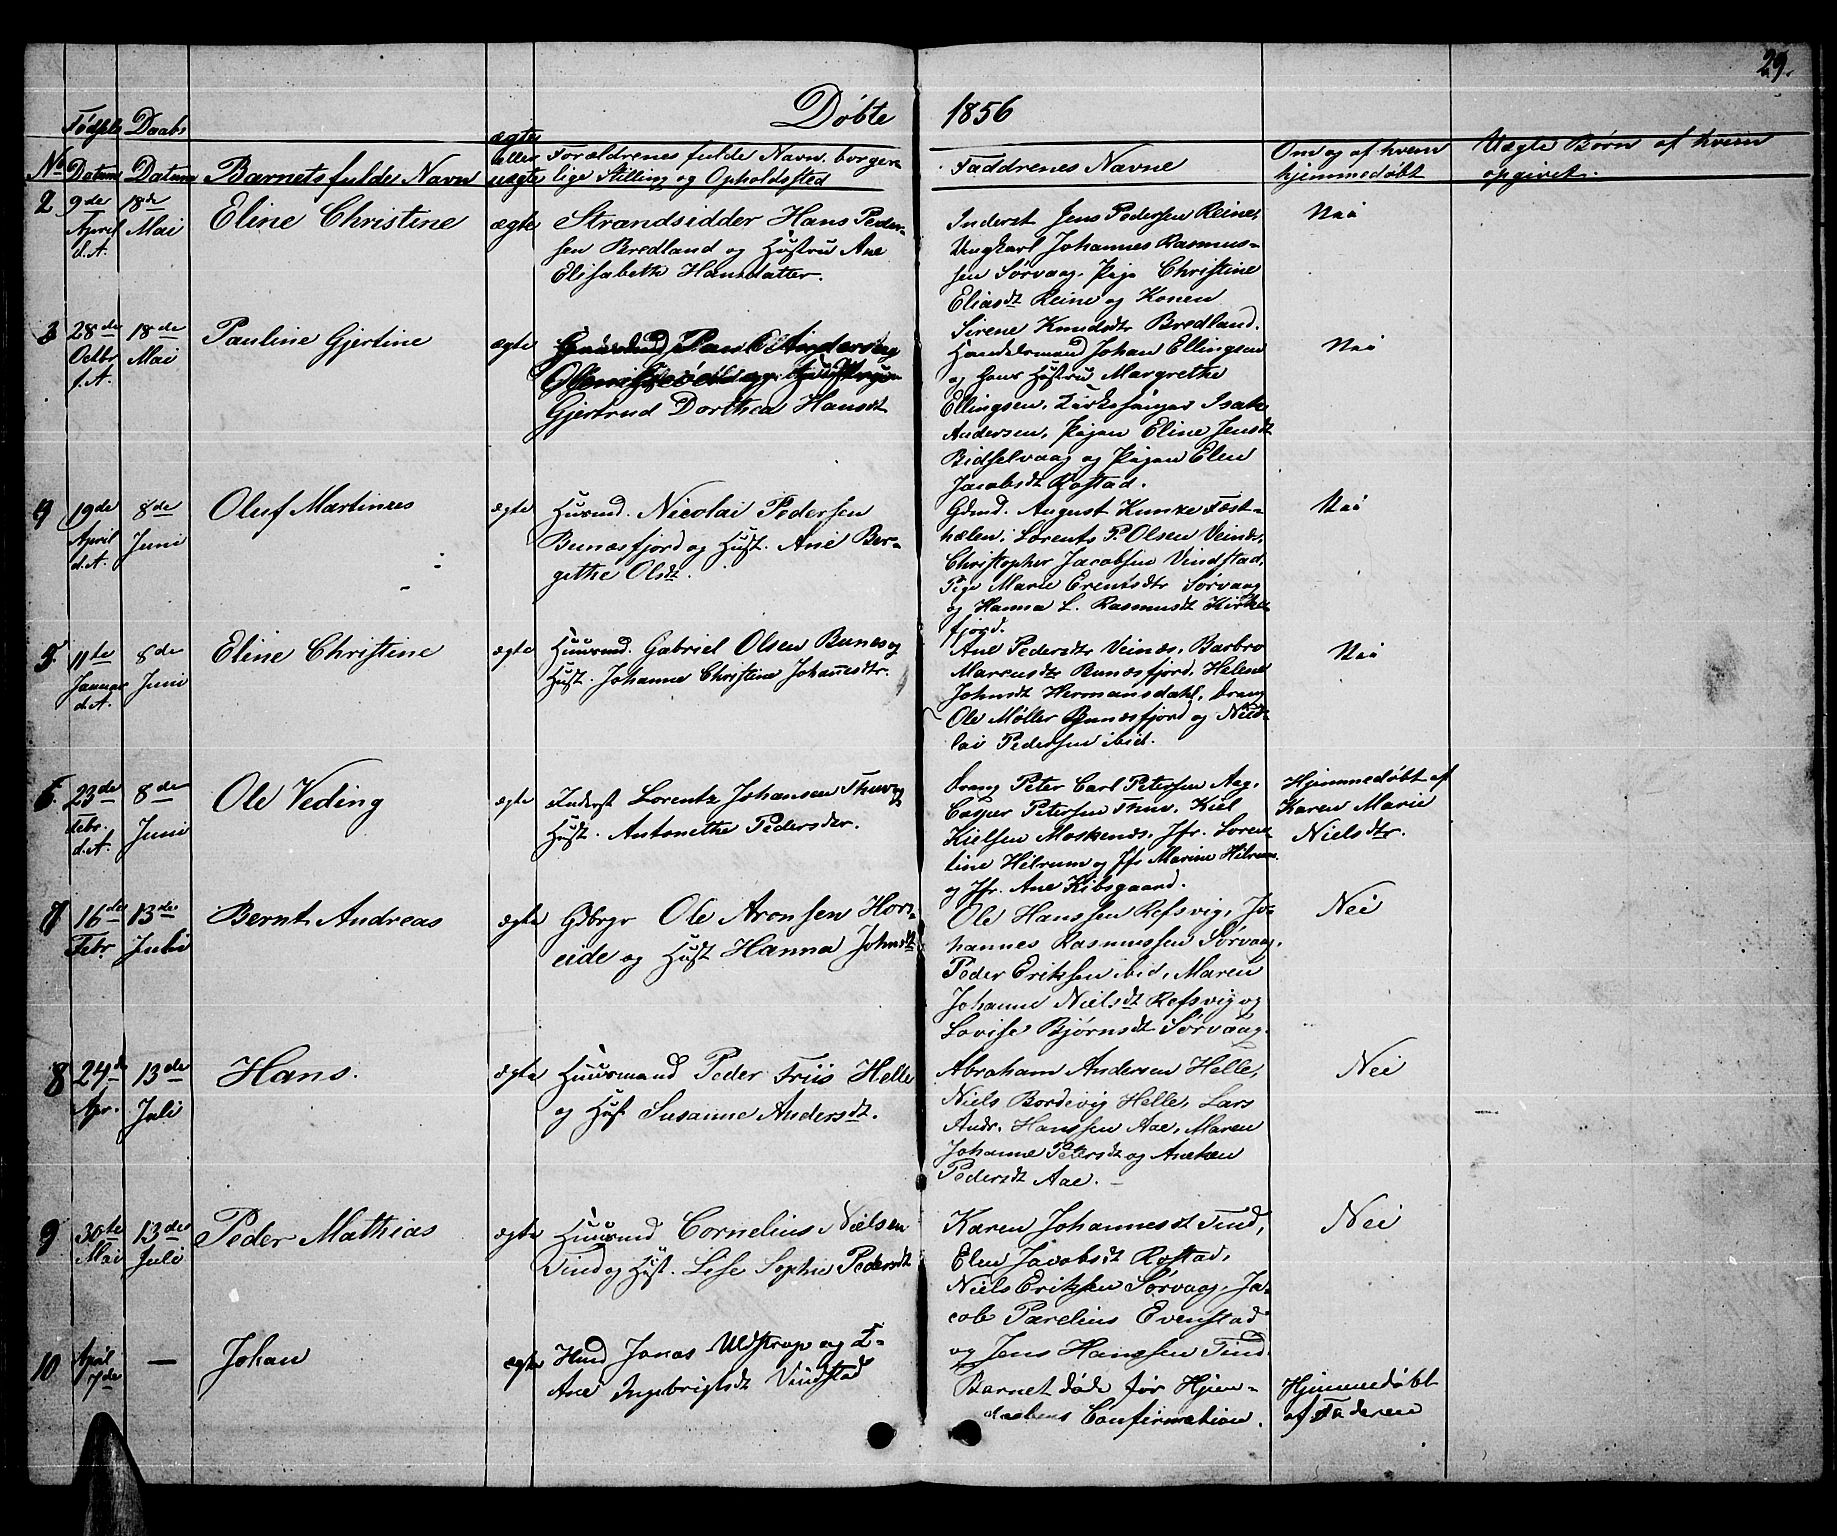 29.
Døbte 1856
Fødsels Daabs
ægte
No Datum Datum Barnets fulde Navn eller uægte Forældrenes fulde Navn, borger-
lige Stilling og Opholdssted
Faddrenes Navne
Om og af hvem
hjemmedøbt
Uægte Børn af hvem
opgivet.
2 9de April d.A. 18de Mai Eline Christine ægte Strandsidder Hans Peder-
sen Bredland og Hustru Ane
Elisabeth Hansdatter.
Inderst Jens Pedersen Reine,
Ungkarl Johannes Rasmus-
sen Sørvaag, Pige Christine
Eliasdt Reine og Konen
Sirene Knudsdtr Bredland.
Nei
3 28de Octbr. f.A. 18de Mai Pauline Gjertine ægte
Gjertrud Dorthea Hansdt
Handelsmand Johan Ellingsen
og Hans Hustru Margrethe
Ellingsen, Kirkesanger Isak
Andersen, Pigen Eline Jensdt
Bidselvaag og Pigen Elen
Jacobsdt Rostad.
Nei
4 19de April d.A. 8de Juni Oluf Martinus ægte Husmd. Nicolai Pedersen
Bunæsfjord og Hust. Ane Ber-
gethe Olsdt.
Gdmd. August Kunke Fæst-
hælen, Lorents P. Olsen Veinæs,
Christopher Jacobsen Vindstad,
Pige Marie Erentsdtr Sørvaag
og Hanna L. Rasmusdt Kirke-
fjord.
Nei
5 11te Januar d.A. 8de Juni Eline Christine ægte Huusmd. Gabriel Olsen Bunes og
Hust. Johanne Christine Johannesdtr.
Ane Pedersdtr Veinæs, Barbro
Marcusdtr Bunæsfjord, Helene
Johnsdt Hermansdahl, Dreng
Ole Møller Bunæsfjord og Nico-
lai Pedersen ibid.
Nei
6. 23de Febr. d.A. 8de Juni Ole Veding ægte Inderst Lorentz Johansen Thuv og
Hust. Antonethe Pedersdtr.
Dreng Peter Carl Petersen Aag,
Casper Petersen Thuv, Kiel
Kielsen Moskenæs, Jfr. Loren-
tine Hilrum og Jfr Marine Hilrum
og Jfr. Ane Kibsgaard.
Hjemmedøbt af
Karen Marie
Nielsdtr.
7 16de Febr. 13de Juli Bernt Andreas ægte Gdbrgr Ole Aronsen Hors-
eide og Hust Hanna Johnsdt
Ole Hanssen Refsvig, Jo-
hannes Rasmussen Sørvaag,
Peder Eriksen ibid, Maren
Johanne Nielsdt Refsvig og
Lovise Bjørnsdt Sørvaag.
Nei
8 24de Apr. 13de Juli Hans. ægte Huusmand Peder Friis Helle
og Hust Susanne Andersdt.
Abraham Andersen Helle,
Niels Bordevig Helle, Lars
Andr. Hanssen Aae, Maren
Johanne Petersdt og Anehen
Pedersdt Aae.
Nei
9 30te Mai 13de Juli Peder Mathias ægte Huusmd Cornelius Nielsen
Tind og Hust. Lise Sophie Pedersdt
Karen Johannesdt Tind,
Elen Jacobsdt Rostad,
Niels Eriksen Sørvaag, Ja-
cob Parelius Evenstad
og Jens Hanssen Tind.
Nei
10 April 7de — Johan ægte Hmd Jonas Uldstrop og H-
Ane Ingebrigtsdt Vindstad
Barnet døde før Hjem-
daabens Confirmation.
Hjemmedøbt
af Faderen